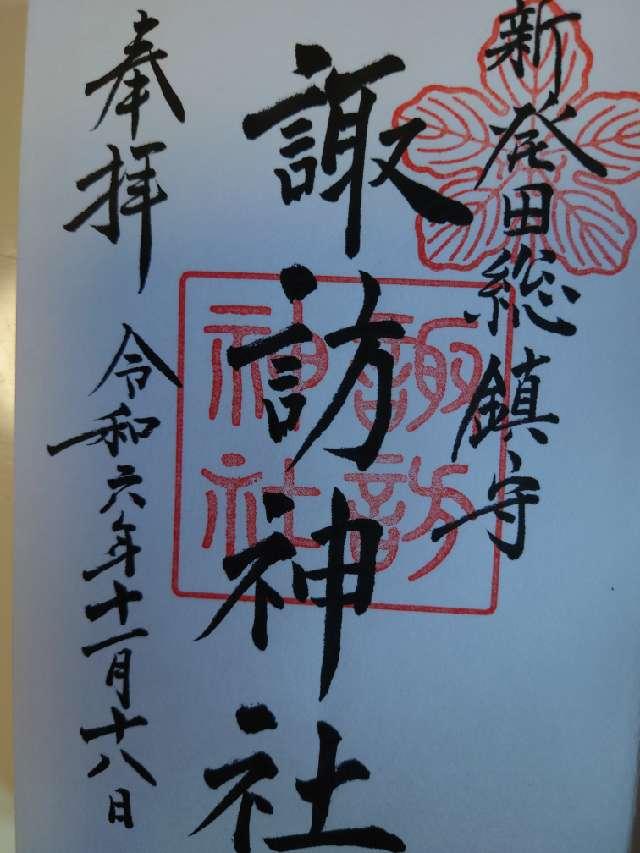 新発田総鎮守
諏訪神社
諏訪
神社
奉拝
令和六年十一月十八日